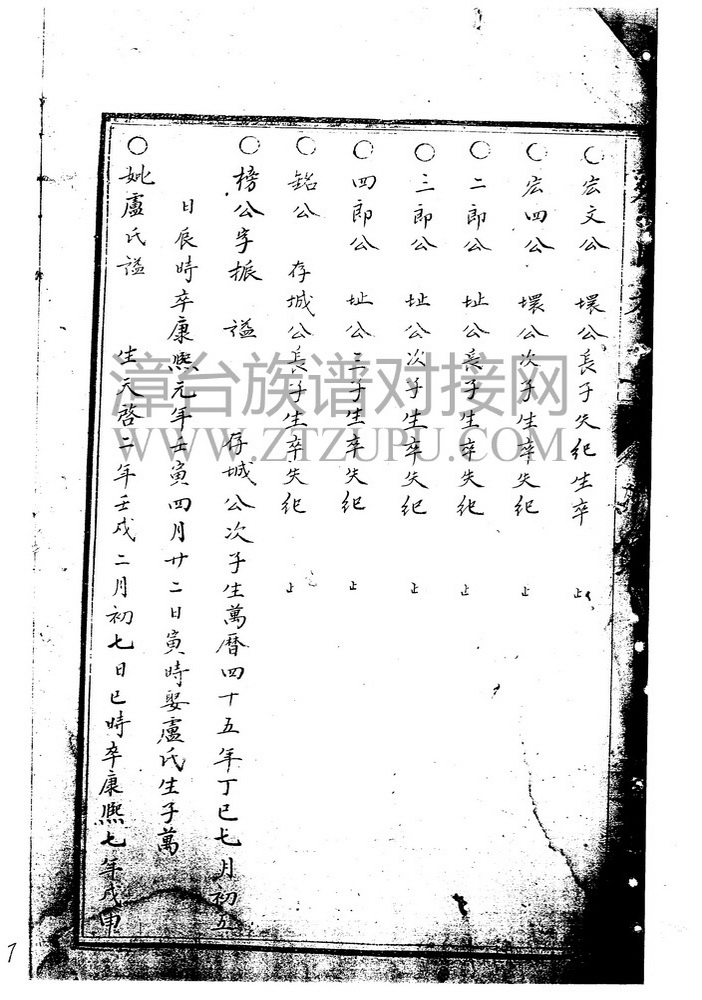 ○宏文公　壞公長子失紀生卒　止
○宏四公　壞公次子生卒失紀　止
○二郎公　址公長子生卒失紀　止
○三郎公　址公次子生卒失紀　止
○四郎公　址公三子生卒失紀　止
○銘公　存城公長子生卒失紀　止
○榜公字振　謚　存城公次子生萬曆四十五年丁巳七月初五
日辰時卒康熙元年壬寅四月廿二日寅時娶盧氏生子萬
○妣盧氏謚　生天啓二年壬戌二月初七日巳時卒康熙七年戊申
漳台族谱对接网
WWW.ZTZUPU.COM
7